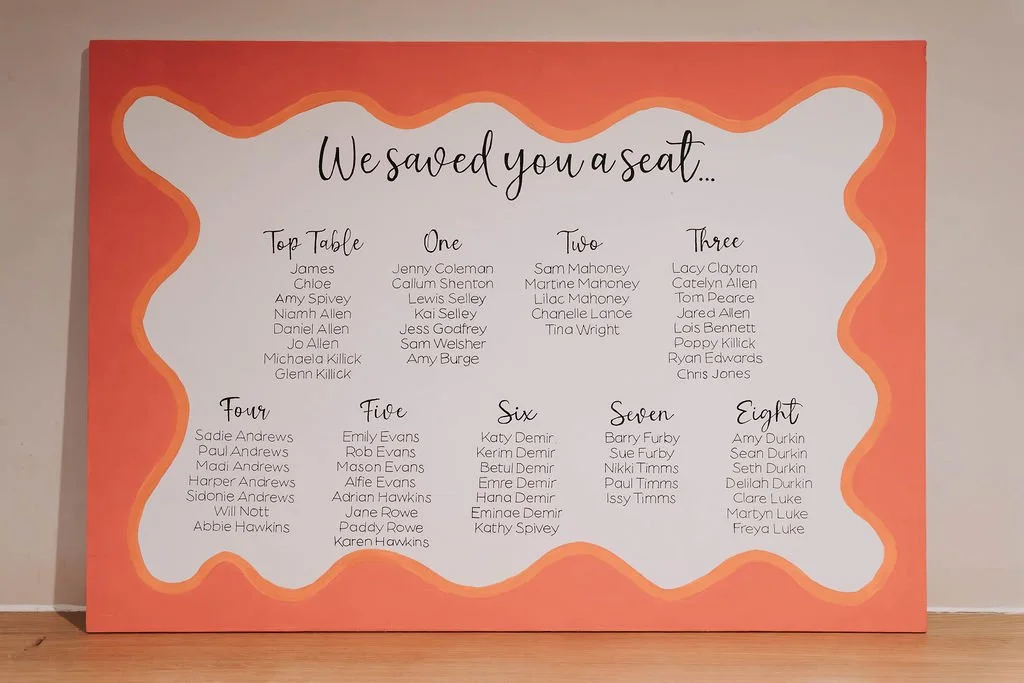 We saved you a seat...
Top Table
James
Chloe
Amy Spivey
Niamh Allen
Daniel Allen
Jo Allen
Michaela Killick
Glenn Killick
One
Jenny Coleman
Callum Shenton
Lewis Selley
Kai Selley
Jess Godfrey
Sam Welsher
Amy Burge
Two
Sam Mahoney
Martine Mahoney
Lilac Mahoney
Chanelle Lanoe
Tina Wright
Three
Lacy Clayton
Catelyn Allen
Tom Pearce
Jared Allen
Lois Bennett
Poppy Killick
Ryan Edwards
Chris Jones
Four
Sadie Andrews
Paul Andrews
Madi Andrews
Harper Andrews
Sidonie Andrews
Will Nott
Abbie Hawkins
Five
Emily Evans
Rob Evans
Mason Evans
Alfie Evans
Adrian Hawkins
Jane Rowe
Paddy Rowe
Karen Hawkins
Six
Katy Demir
Kerim Demir
Betul Demir
Emre Demir
Hana Demir
Eminae Demir
Kathy Spivey
Seven
Barry Furby
Sue Furby
Nikki Timms
Paul Timms
Issy Timms
Eight
Amy Durkin
Sean Durkin
Seth Durkin
Delilah Durkin
Clare Luke
Martyn Luke
Freya Luke